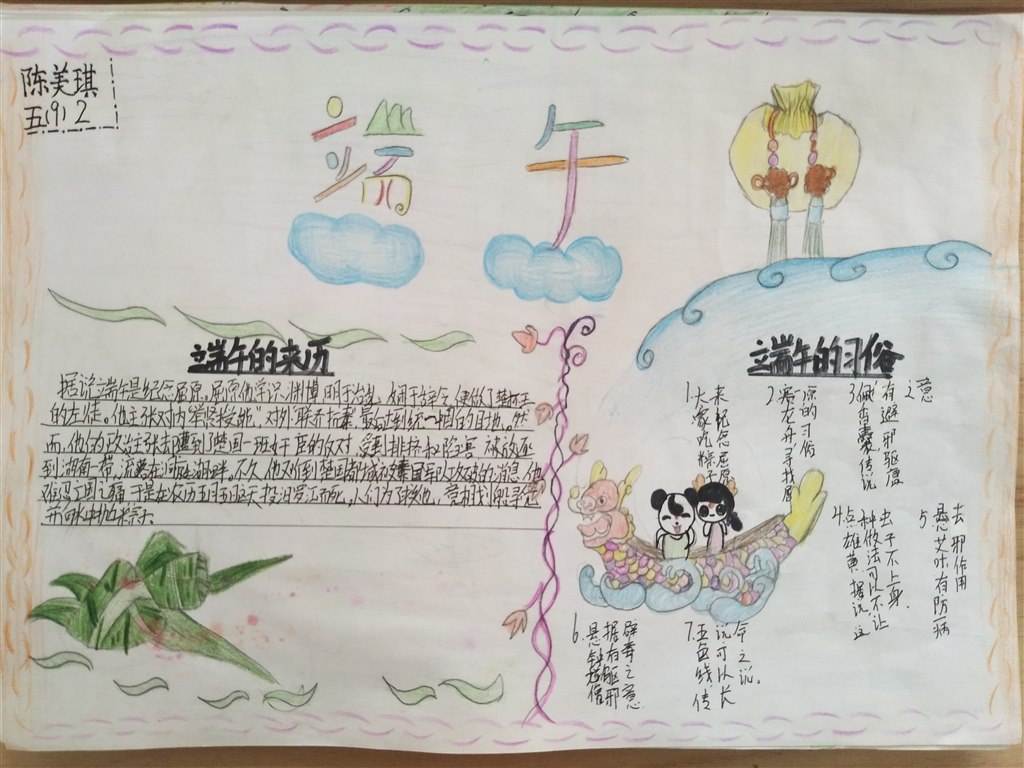 陈美琪
五(9) 2
端午
端午的来历
据说端午是纪念屈原。屈原他学识渊博明于治乱，娴于辞令，使做了楚怀王
的左徒。他主张对内"举贤授能"，对外"联齐抗秦"最后达到统一中国的目地。然
而，他的政治主张却遭到楚国一班奸臣的反对，受到排挤和陷害，被放逐
到湖南一带，流落在洞庭湖畔。不久，他又听到楚国
难忍亡国之痛，于是在农历五月初五这天投汨罗江而死。人们为了拯救他，
并向水中抛
端午的习俗
1.大家吃粽子
来纪念屈原
2.赛龙舟寻找屈
原的习俗
3.佩香囊传说
有避邪驱瘟
之意
4.点雄黄 据说这
种做法可以不让
虫子不上身.
5 悬艾叶有防病
去邪作用
6.悬钟馗像
据有驱邪
辟毒之意
7.五色线传
说可以长
命之说。